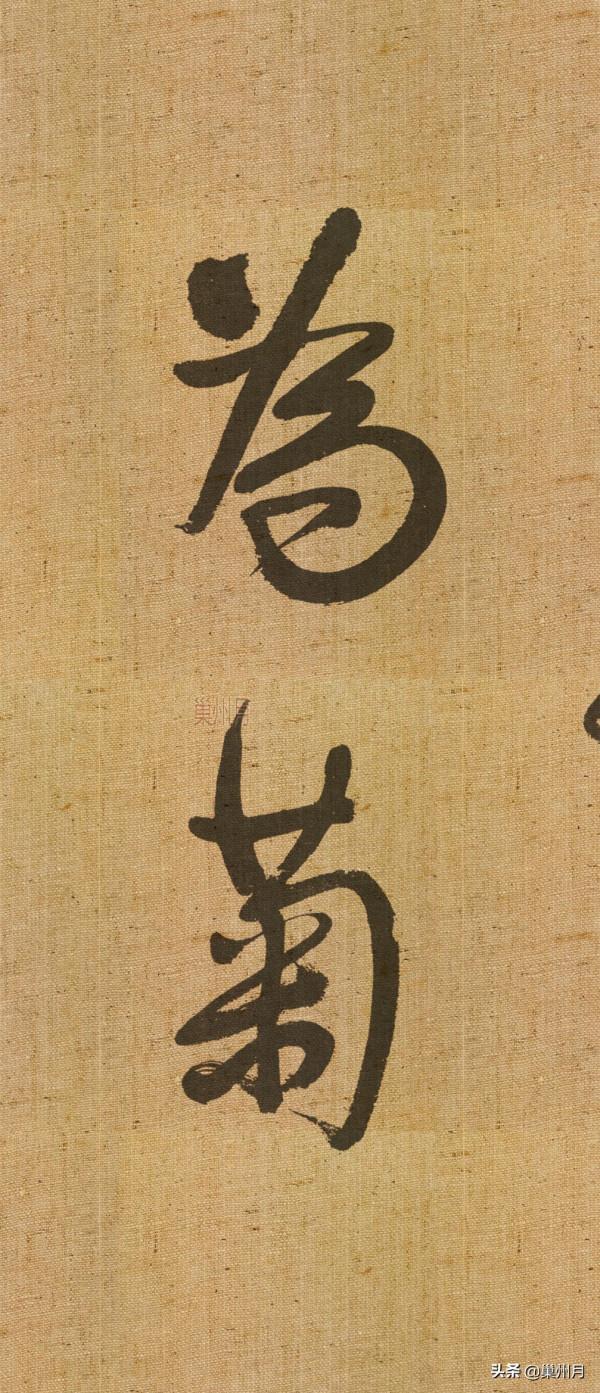 為
菊
巢州月
头条 @巢州月